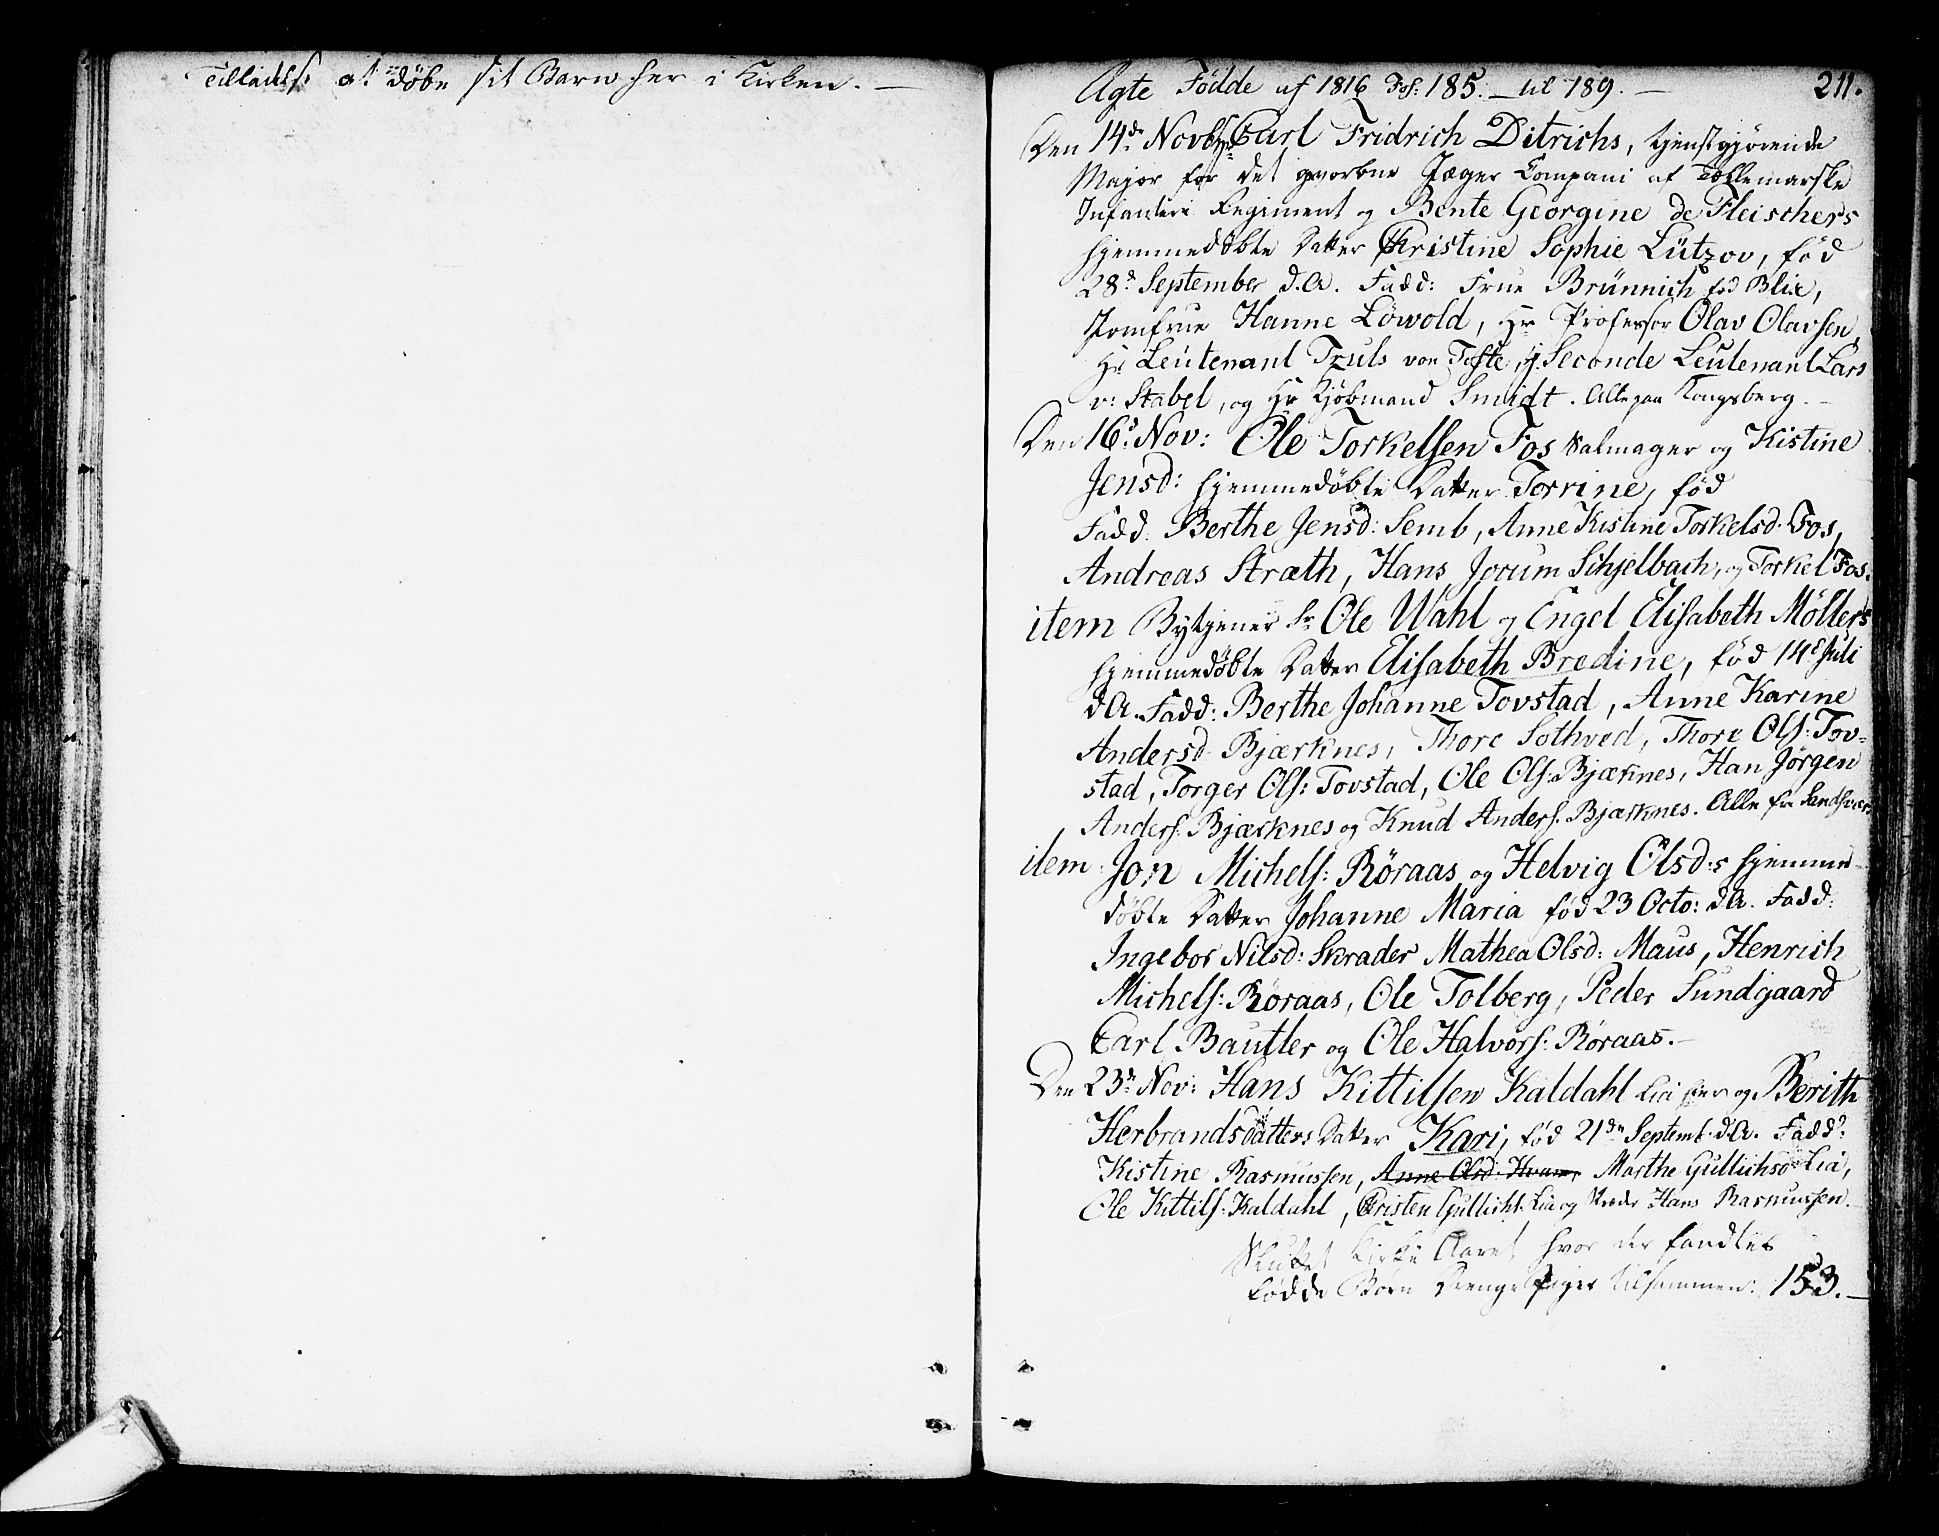 Tilladelse at döbe sit Barn her i Kirken. —
Ægte Födde af 1816 Fol: 185. — til 189. — 211.
Den 14de Novbr Hr Carl Fridrich Ditrichs, tjenstgjörende
Major for det gevorbne Jæger Compani af Tellemarske
Infanteri Regiment og Bente Georgine de Fleischers
hjemmedöbte Datter Christine Sophie Lützov, föd
28de September d.A. Fadd: Frue Brünnich föd Blix,
Jomfrue Hanne Löwold, Hr Professor Olav Olavsen,
Hr Leutenant Truls von Toste, Hr Seconde Leutenant Lars
v: Stabel, og Hr Kjöbmand Smidt. Alle paa Kongsberg. —
Den 16d Nov: Ole Torkelsen Fos Salmager og Kistine
Jensd: hjemmedöbte Datter Torrine, föd
Fadd. Berthe Jensd: Semb, Anne Kistine Torkelsd. Fos,
Andreas Stræth, Hans Jocum Schjelbach, og Torkel Fos.
item Bytjener Sr Ole Wahl og Engel Elisabeth Möllers
hjemmedöbte Datter Elisabeth Bredine, föd 14d Juli
d.A. Fadd: Berthe Johanne Tovstad, Anne Karine
Andersd. Bjærknes, Thore Sothved, Thore Ols: Tov=
stad, Torger Ols: Tovstad, Ole Ols: Bjærknes, Han Jørgen
Anders: Bjærknes og Knud Anders. Bjærknes. Alle fra Sandsvær
item Jon Michels: Röraas og Helvig Olsd:s hjemme
döbte Datter Johanne Maria föd 23 Octo: d.A. Fadd:
Ingebor Nilsd: Skrader Mathea Olsd: Maus, Henrich
Michels: Röraas, Ole Tolberg, Peder Sundgaard
Carl Bautler og Ole Halvors: Röraas. —
Den 23de Nov: Hans Kittilsen Kaldahl og Berith
Herbrandsdatters Datter Kari, föd 21de Septemb. d.A. Fadd:
Kistine Rasmussen, Anne Olsd: Hvam, Marthe Gullichsd Lia,
Ole Kittils: Kaldahl, Cristen Gullichs. Lia og Hans Rasmussen.
Sluttet Kirke Aaret hvor der fandtes
födde Börn Drenge Piger tilsammen: 153. —